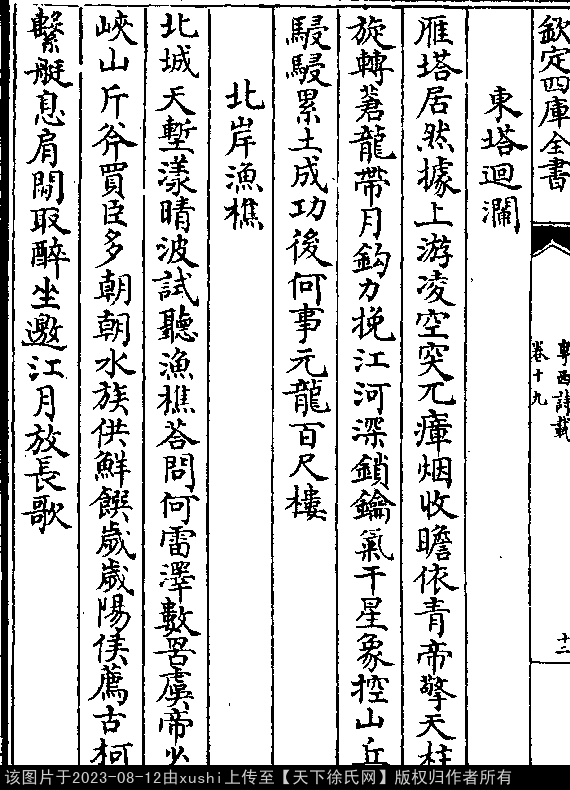 欽定四庫全書
粤西詩載
卷十九
十二
東塔迴瀾
雁塔居然據上游凌空突兀瘴烟收瞻依青帝擎天柱
旋轉蒼龍帶月鈎力挽江河深鎖鑰氣干星象控山丘
駸駸累土成功後何事元龍百尺樓
北岸漁樵
北城天塹漾晴波試聽漁樵荅問何雷澤數罟虞帝少
峽山斤斧買臣多朝朝水族供鮮饌歲歲陽侯薦古柯
繫艇息肩閒取醉坐邀江月放長歌
该图片于2023-08-12由xushi上传至【天下徐氏网】版权归作者所有